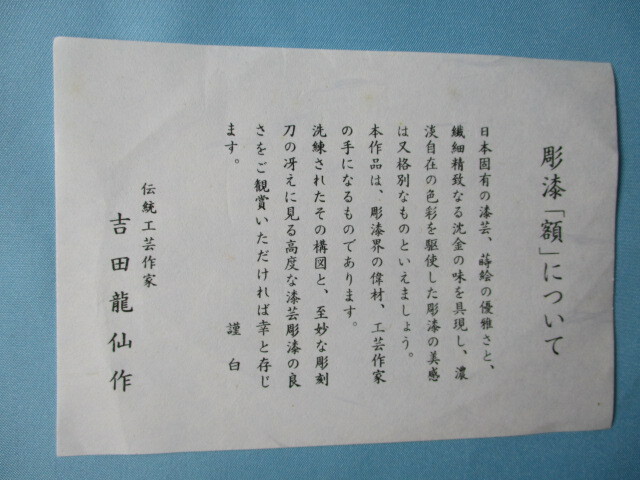 彫漆「額」について
日本固有の漆芸、蒔絵の優雅さと、
繊細精致なる沈金の味を具現し、濃
淡自在の色彩を駆使した彫漆の美感
は又格別なものといえましょう。
本作品は、彫漆界の偉材、工芸作家
の手になるものであります。
洗練されたその構図と、至妙な彫刻
刀の冴えに見る高度な漆芸彫漆の良
さをご観賞いただければ幸と存じ
ます。
謹白
伝統工芸作家
吉田龍仙作